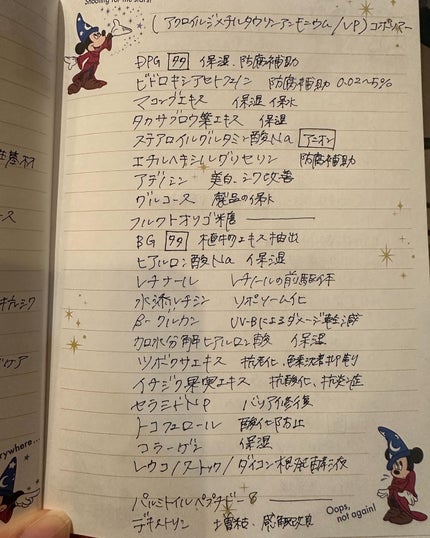 Shooting for the stars!
(アクロイルジメチルタウリンアンモニウム/VP)コポリマー
DPG 多価 保湿、防腐補助
ヒドロキシアセトフェノン 防腐補助 0.02〜5%
マコンブエキス 保湿 保水
タカサブロウ葉エキス 保湿
ステアロイルグルタミン酸Na アニオン
エチルヘキシルグリセリン 防腐補助
アデノシン 美白、シワ改善
グルコース 製品の保水
フルクトオリゴ糖
BG 多価 植物エキス抽出
ヒアルロン酸Na 保湿
レチナール レチノールの前駆体
水添レチシン リポソーム化
β-グルカン UV-Bによるダメージ軽減
加水分解ヒアルロン酸 保湿
ツボクサエキス 抗老化、色素沈着抑制
イチジク果実エキス 抗酸化、抗炎症
セラミドNP バリア修復
トコフェロール 酸化防止
コラーゲン 保湿
レウコノストック/ダイコン根発酵液
パルミトイルペンタペプチド-
デキストリン 増粘、感触改良
性基材
ース
ケア
everywhere...
Oops,
not again!